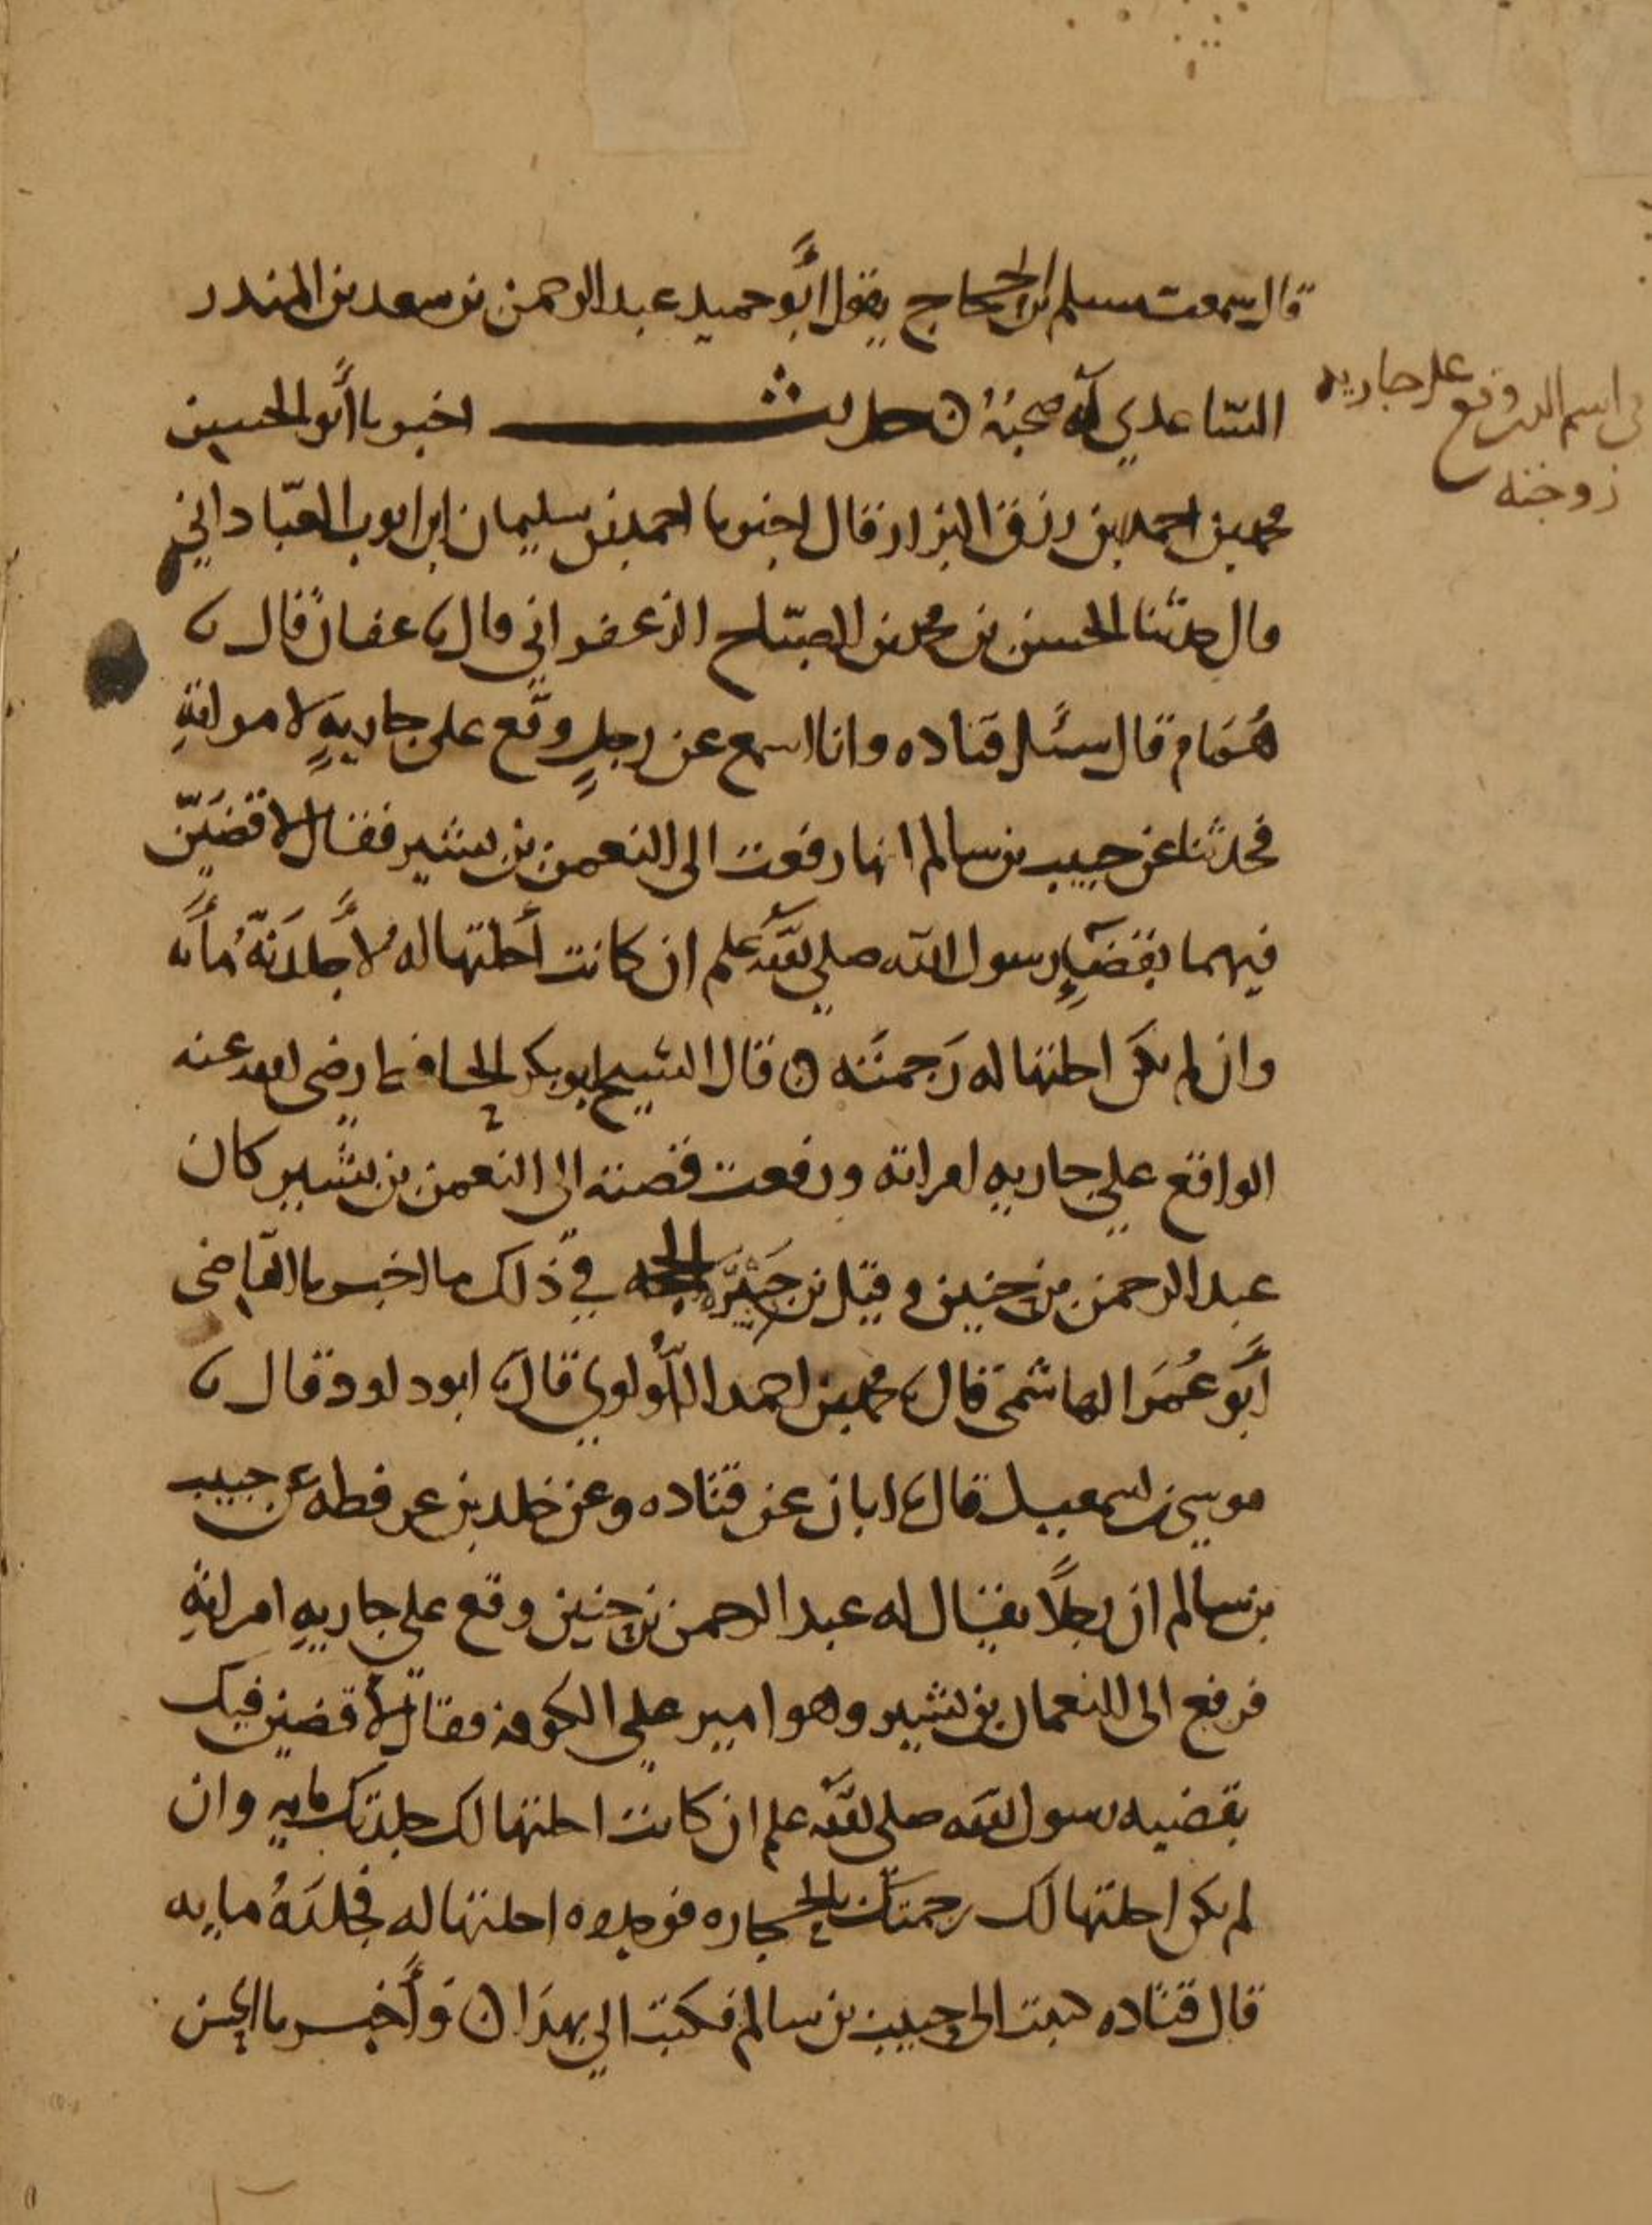 قال سمعت مسلم ابن الحجاج يقول أبو حميد عبد الرحمن بن سعد بن المنذر
السّاعدي له صحبة ۞ حديث اخبرنا أبو الحسين
محمد بن احمد بن رزق البزاز قال اخبرنا احمد بن سليمان ابن ايوب العبّاداني
قال حدثنا الحسن بن محمد بن الصبّاح الزعفراني قال نا عفان قال نا
همام قال سئل قتاده وانا اسمع عن رجلٍ وقع على جاريةٍ لامراتهِ
فحدثنا عن حبيب بن سالم انها رفعت الى النعمن بن بشير فقال لاقضينّ
فيهما بقضآءِ رسول الله صلى الله علم ان كانت أحلتها له لأجلدنّه مأىه
وان لم تكن احلتها له رجمته ۞ قال الشيخ ابو بكر الحافظ رضى الله عنه
الواقع على جاريه امراته ورفعت قصته الى النعمن بن بشير كان
عبد الرحمن بن حنين وقيل بن جبير الحجه في ذلك ما اخبرنا القاضى
أبو عُمَر الهاشمى قال نا محمد بن احمد اللؤلوي قال نا ابو داود قال نا
موسى بن اسمعيل قال نا ابان عن قتاده وعن خلد بن عرفطه عن حبيب
بن سالم ان رجلًا يقال له عبد الرحمن بن حنين وقع على جاريهِ امراتهِ
فرفع الى النعمان بن بشير وهو امير على الكوفه فقال لأقضين فيك
بقضيه رسول الله صلى الله علم ان كانت احلتها لك جلدتك مايه وان
لم تكن احلتها لك رجمتك بالحجاره فوجدوه احلتها له فجلده مايه
قال قتاده كتبت الى حبيب بن سالم فكتب الي بهذا ۞ وأخبرنا الحسن
في اسم الذي وقع على جاريه
زوجته